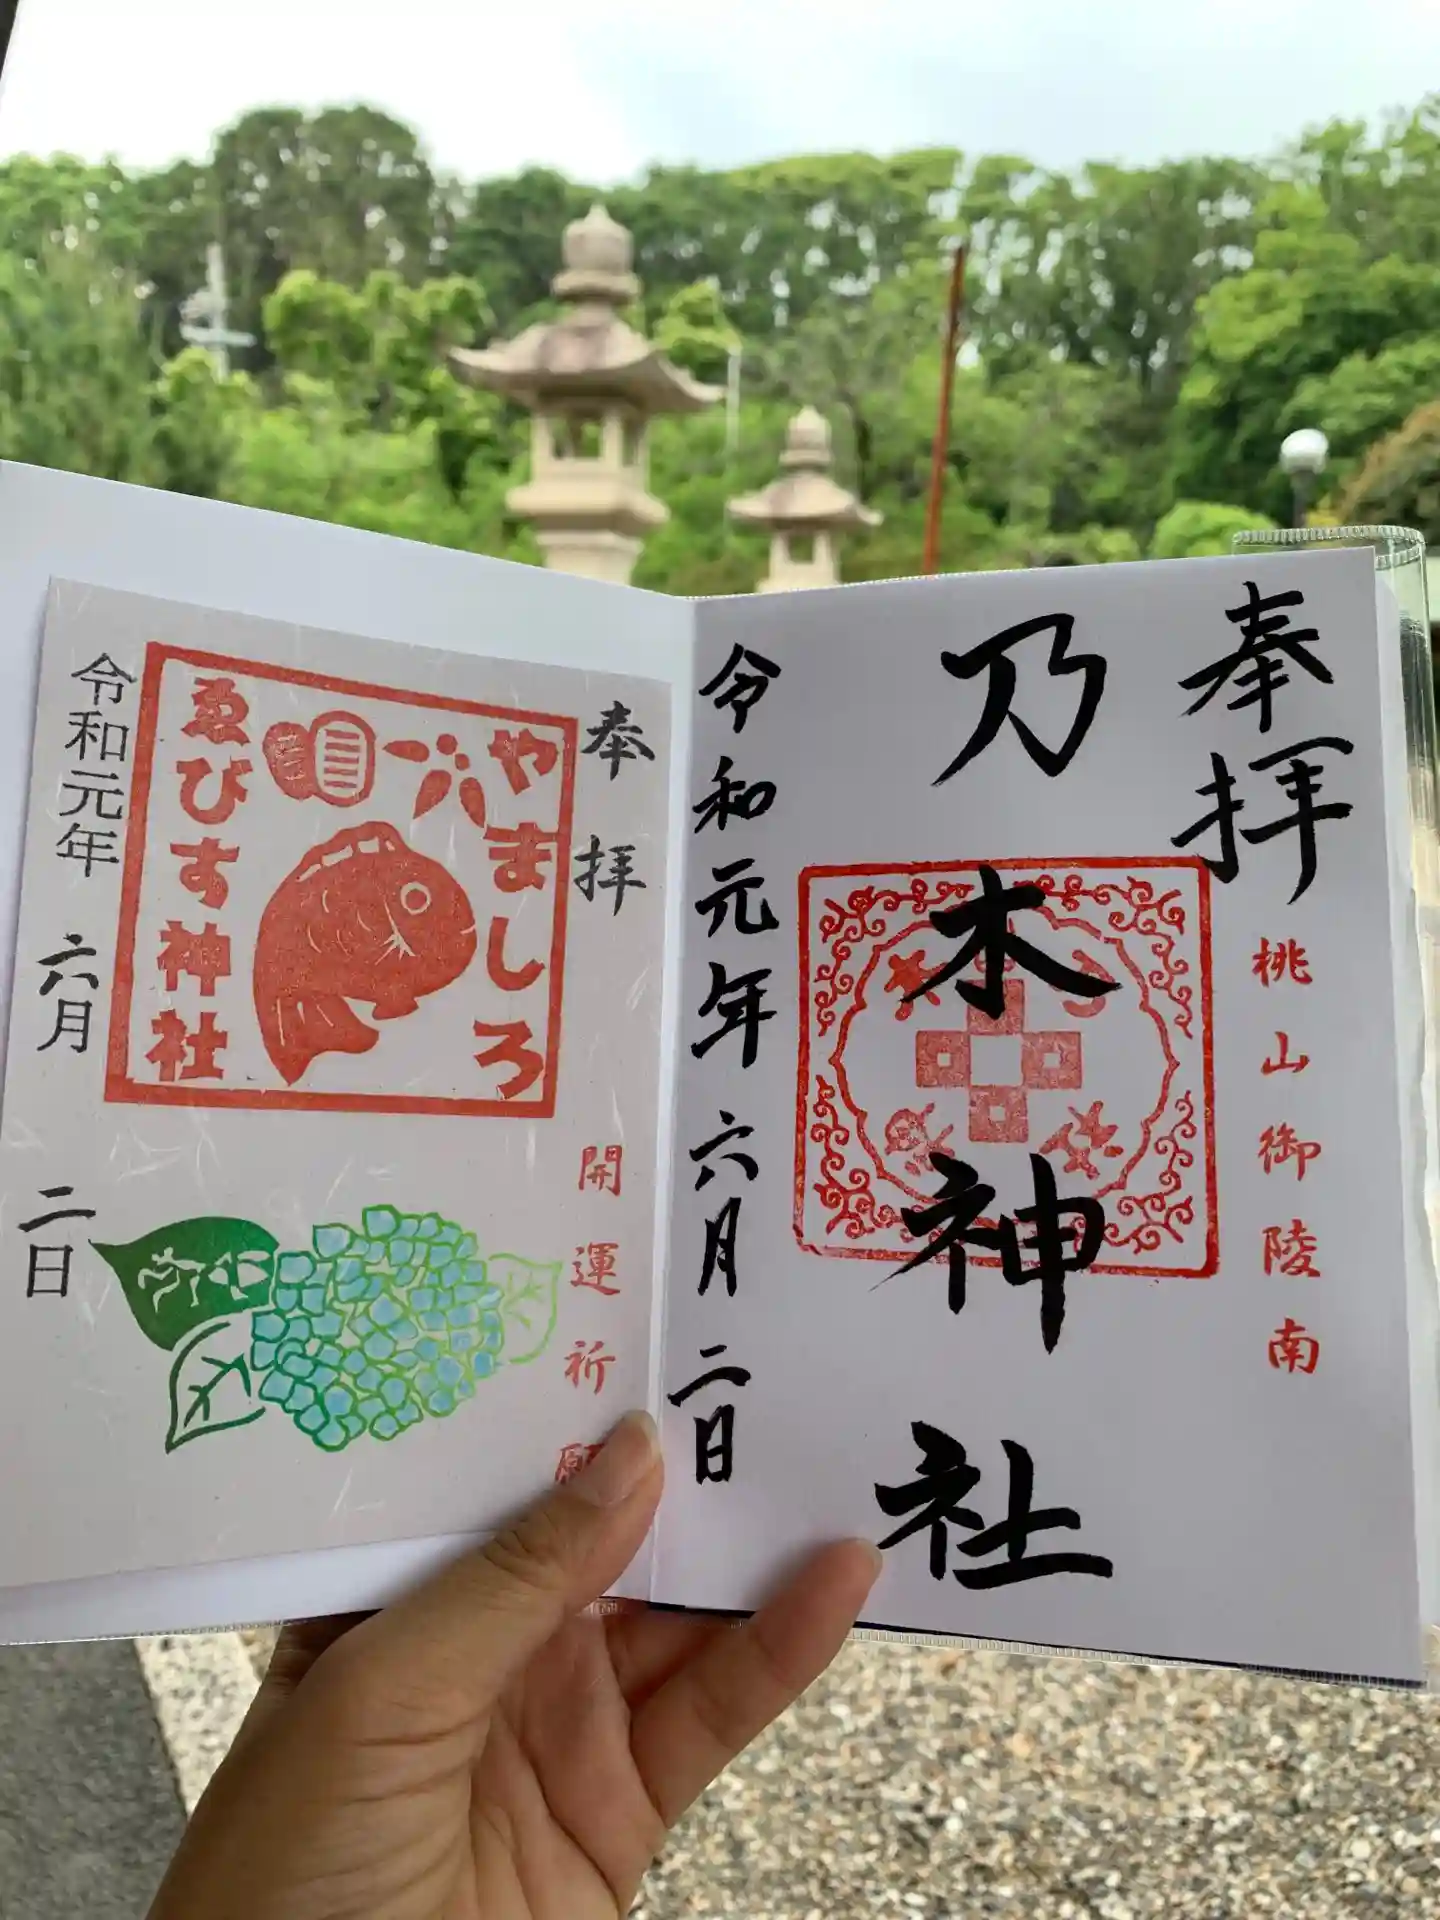 奉拝
桃山御陵南
乃木神社
令和元年六月二日
奉拝
開運祈願
やましろ
ゑびす神社
令和元年六月二日